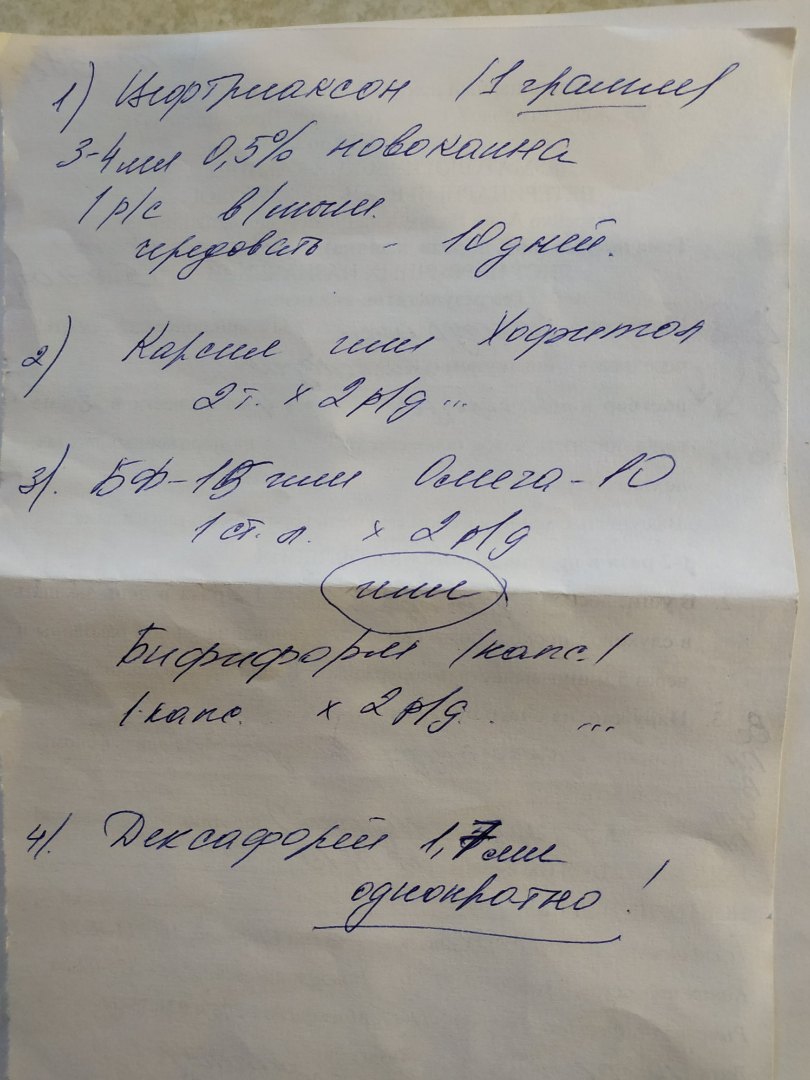 1) Цефтриаксон (1 грамм)
3-4 мл 0,5% новокаина
1 р/с в/мыш.
чередовать - 10 дней.
2) Карсил или Хофитол
2 т. х 2 р/д ...
3). БФ-15 или Омега-10
1 ст. л. х 2 р/д
или
Бифиформ /капс./
1 капс. х 2 р/д. ...
4). Дексафорт 1,7 мл
однократно!